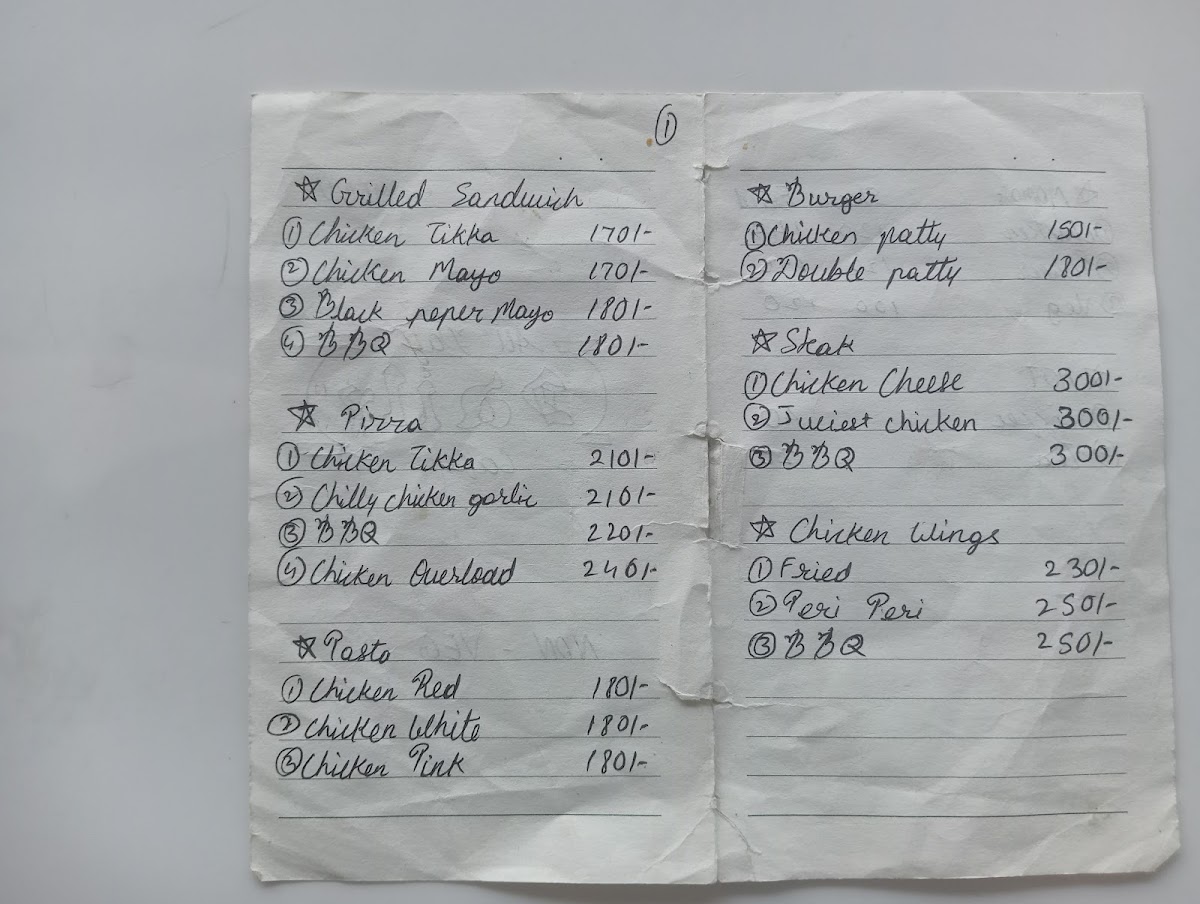 ①
☆ Grilled Sandwich
① Chicken Tikka 170/-
② Chicken Mayo 170/-
③ Black peper Mayo 180/-
④ BBQ 180/-
☆ Pizza
① Chicken Tikka 210/-
② Chilly chicken garlic 210/-
③ BBQ 220/-
④ Chicken Overload 240/-
☆ Pasta
① Chicken Red 180/-
② Chicken White 180/-
③ Chicken Pink 180/-
☆ Burger
① Chicken patty 150/-
② Double patty 180/-
☆ Steak
① Chicken Cheese 300/-
② Juciest chicken 300/-
③ BBQ 300/-
☆ Chicken Wings
① Fried 230/-
② Peri Peri 250/-
③ BBQ 250/-